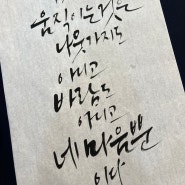 움직이는것은
나뭇가지도
아니고
바람도
아니고
네마음뿐
이다